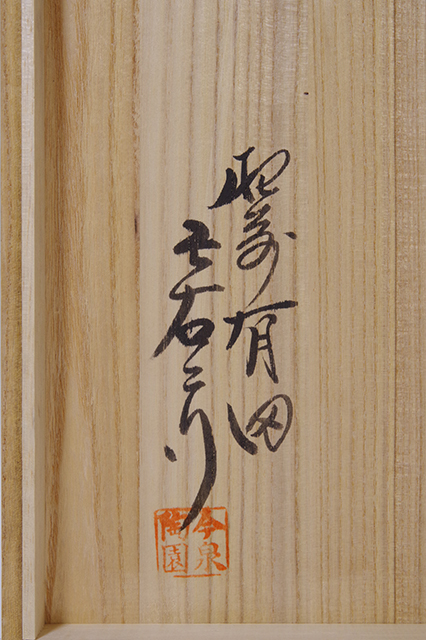 肥前有田
吉右エ門
今泉
陶園